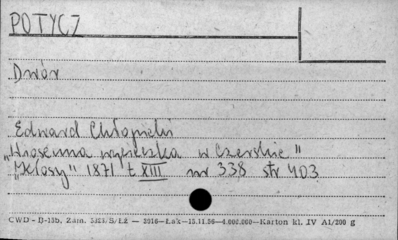 POTYCZ
Dwór
Edward Chłopicki
„Wiosenna wycieczka w Czerskie"
„Kłosy" 1871 t XIII nr 338 str 403
CWD - D-13b. Zam. 5323/S/Łź — 2016—Łsk—15.11.96—4.000.000—Karton kl. IV A1/200 g